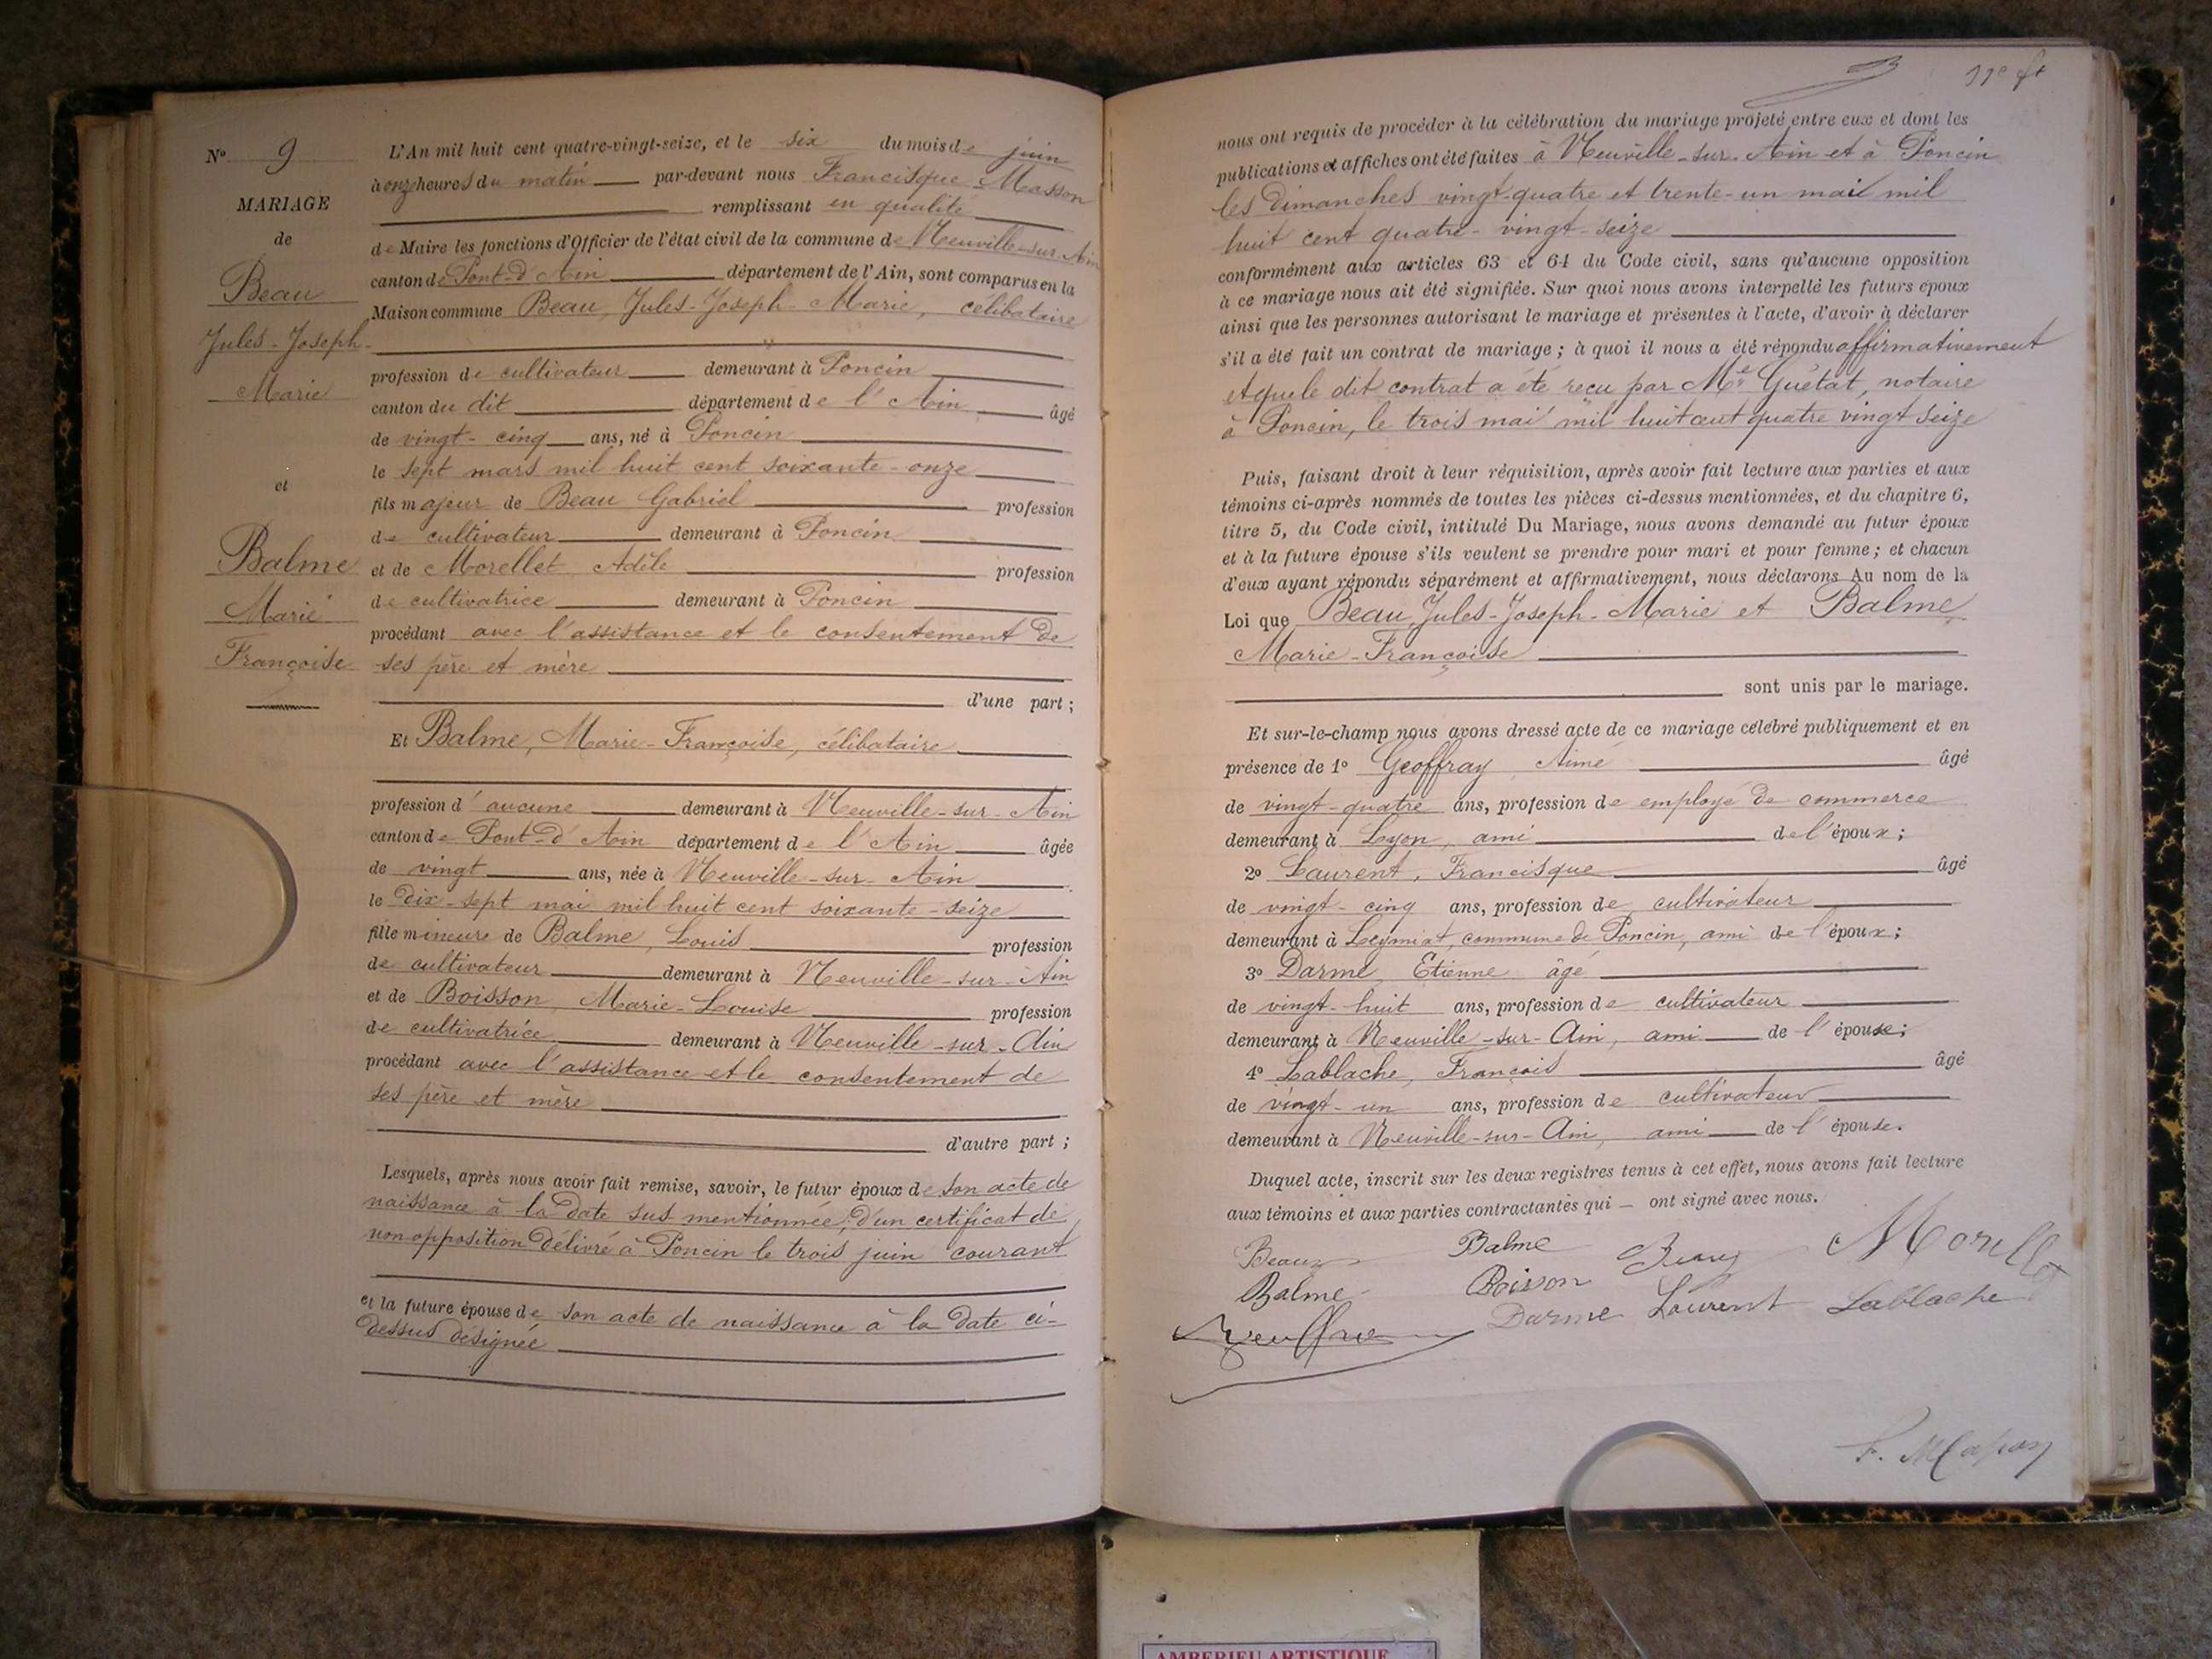 N° 9
MARIAGE
de
Beau
Jules-Joseph-
Marie
et
Balme
Marie
Françoise
L'An mil huit cent quatre-vingt-seize, et le six du mois de juin
à onze heures du matin par-devant nous Francisque Masson
remplissant en qualité
de Maire les fonctions d'Officier de l'état civil de la commune de Neuville-sur-Ain
canton de Pont-d'Ain département de l'Ain, sont comparus en la
Maison commune Beau, Jules-Joseph-Marie, célibataire
profession de cultivateur demeurant à Poncin
canton du dit département de l'Ain âgé
de vingt-cinq ans, né à Poncin
le sept mars mil huit cent soixante-onze
fils majeur de Beau Gabriel profession
de cultivateur demeurant à Poncin
et de Morellet, Adèle profession
de cultivatrice demeurant à Poncin
procédant avec l'assistance et le consentement de
ses père et mère
d'une part ;
Et Balme, Marie-Françoise, célibataire
profession d'aucune demeurant à Neuville-sur-Ain
canton de Pont-d'Ain département de l'Ain âgée
de vingt ans, née à Neuville-sur-Ain
le dix-sept mai mil huit cent soixante-seize
fille mineure de Balme, Louis profession
de cultivateur demeurant à Neuville-sur-Ain
et de Boisson, Marie-Louise profession
de cultivatrice demeurant à Neuville-sur-Ain
procédant avec l'assistance et le consentement de
ses père et mère
d'autre part ;
Lesquels, après nous avoir fait remise, savoir, le futur époux de son acte de
naissance à la date sus mentionnée, d'un certificat de
non opposition délivré à Poncin le trois juin courant
et la future épouse de son acte de naissance à la date ci-
dessus désignée
nous ont requis de procéder à la célébration du mariage projeté entre eux et dont les
publications et affiches ont été faites à Neuville-sur-Ain et à Poncin
les dimanches vingt-quatre et trente-un mai mil
huit cent quatre-vingt-seize
conformément aux articles 63 et 64 du Code civil, sans qu'aucune opposition
à ce mariage nous ait été signifiée. Sur quoi nous avons interpellé les futurs époux
ainsi que les personnes autorisant le mariage et présentes à l'acte, d'avoir à déclarer
s'il a été fait un contrat de mariage ; à quoi il nous a été répondu affirmativement
et que le dit contrat a été reçu par Me Guétat, notaire
à Poncin, le trois mai mil huit cent quatre vingt seize
Puis, faisant droit à leur réquisition, après avoir fait lecture aux parties et aux
témoins ci-après nommés de toutes les pièces ci-dessus mentionnées, et du chapitre 6,
titre 5, du Code civil, intitulé Du Mariage, nous avons demandé au futur époux
et à la future épouse s'ils veulent se prendre pour mari et pour femme ; et chacun
d'eux ayant répondu séparément et affirmativement, nous déclarons Au nom de la
Loi que Beau, Jules-Joseph-Marie et Balme
Marie-Françoise
sont unis par le mariage.
Et sur-le-champ nous avons dressé acte de ce mariage célébré publiquement et en
présence de 1° Geoffray Aimé âgé
de vingt-quatre ans, profession de employé de commerce
demeurant à Lyon, ami de l'époux ;
2° Laurent, Francisque âgé
de vingt-cinq ans, profession de cultivateur
demeurant à Leymiat, commune de Poncin, ami de l'époux ;
3° Darme Etienne âgé
de vingt-huit ans, profession de cultivateur
demeurant à Neuville-sur-Ain, ami de l'épouse ;
4° Lablache, François âgé
de vingt-un ans, profession de cultivateur
demeurant à Neuville-sur-Ain, ami de l'épouse.
Duquel acte, inscrit sur les deux registres tenus à cet effet, nous avons fait lecture
aux témoins et aux parties contractantes qui – ont signé avec nous.
Balme Morellet
Balme Boisson
Darme Laurent Lablache
F. Masson
AMBERIEU ARTISTIQUE